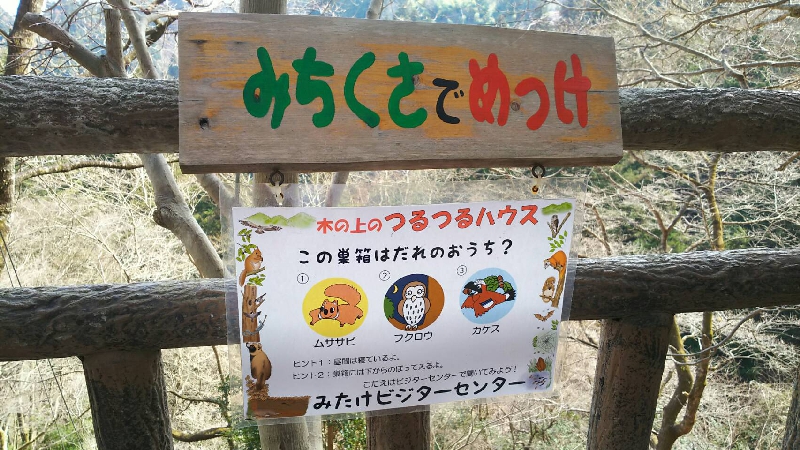 みちくさでめっけ
木の上のつるつるハウス
この巣箱はだれのおうち？
① ② ③
ムササビ フクロウ カケス
ヒント1：昼間は寝ているよ。
ヒント2：巣箱には下からのぼって入るよ。
こたえはビジターセンターで聞いてみよう！
みたけビジターセンター